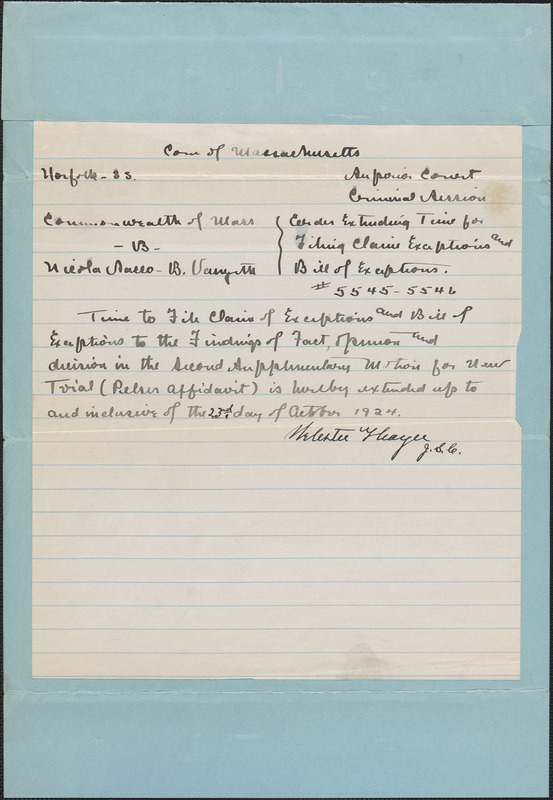 Com of Massachusetts
Norfolk - SS. Superior Court
Criminal Session
Commonwealth of Mass Order Extending Time for
- VS - Filing Claim Exceptions and
Nicola Sacco - B. Vanzetti Bill of Exceptions.
# 5545 - 5546
Time to File Claim of Exceptions and Bill of
Exceptions to the Findings of Fact, opinion and
decision in the Second Supplementary Motion for New
Trial (Pelser Affidavit) is hereby extended up to
and inclusive of the 23rd day of October 1924.
Webster Thayer
J.S.C.